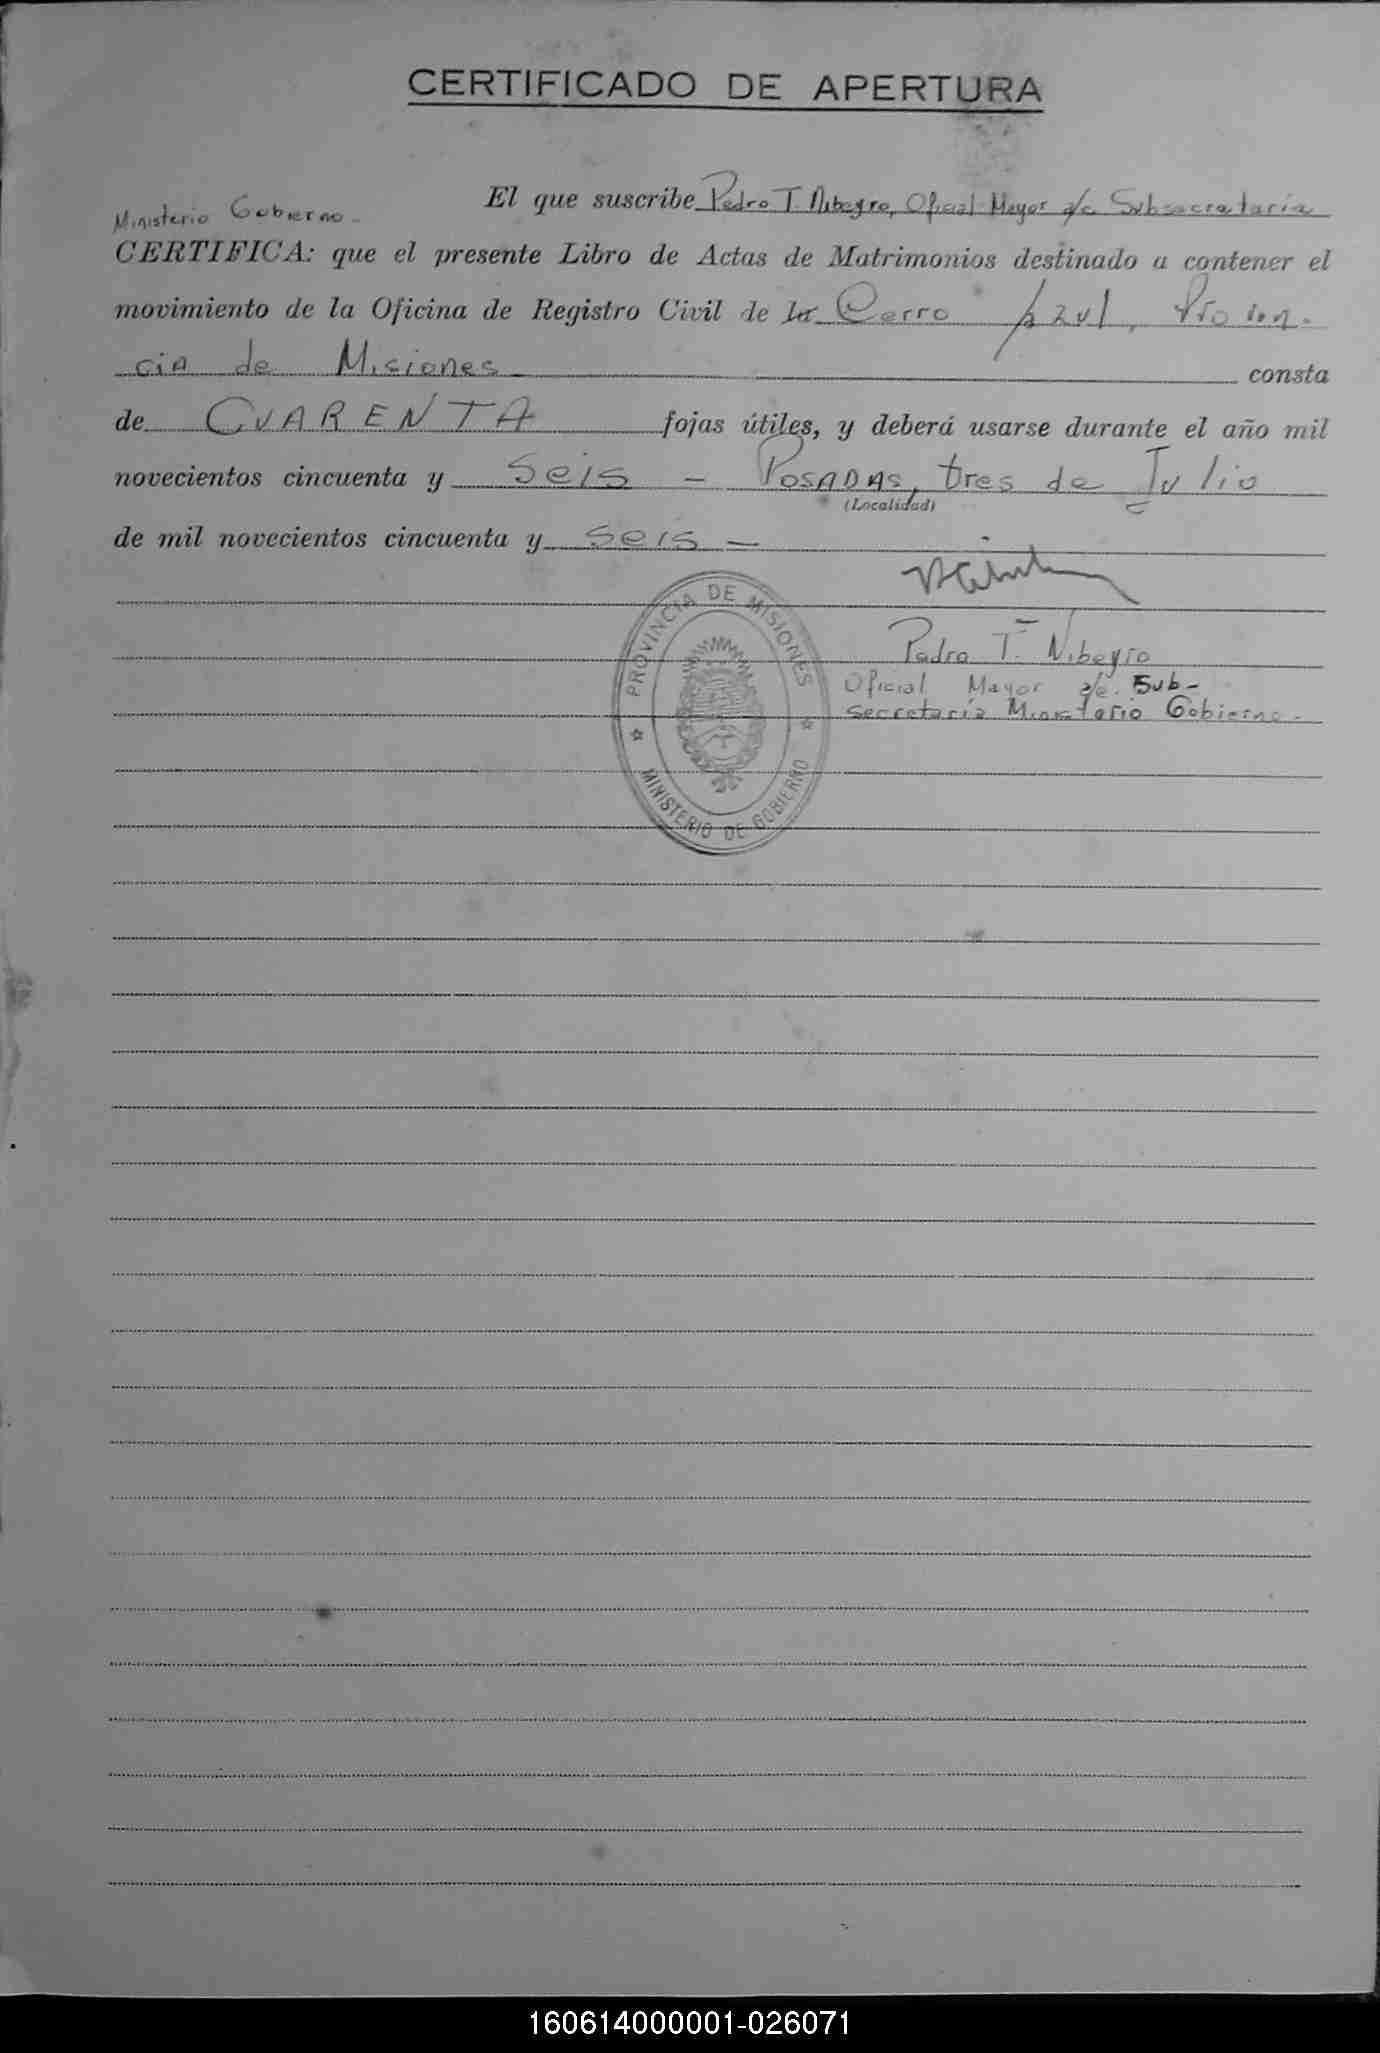 CERTIFICADO DE APERTURA
El que suscribe Pedro T. Nibeyro, Oficial Mayor a/c Subsecretaría
Ministerio Gobierno.
CERTIFICA: que el presente Libro de Actas de Matrimonios destinado a contener el
movimiento de la Oficina de Registro Civil de la Cerro Azul, Provin-
cia de Misiones consta
de CUARENTA fojas útiles, y deberá usarse durante el año mil
novecientos cincuenta y Seis - POSADAS, tres de Julio
(Localidad)
de mil novecientos cincuenta y seis -
Pedro T. Nibeyro
Oficial Mayor a/c. Sub-
secretaría Ministerio Gobierno.
PROVINCIA DE MISIONES
MINISTERIO DE GOBIERNO
160614000001-026071